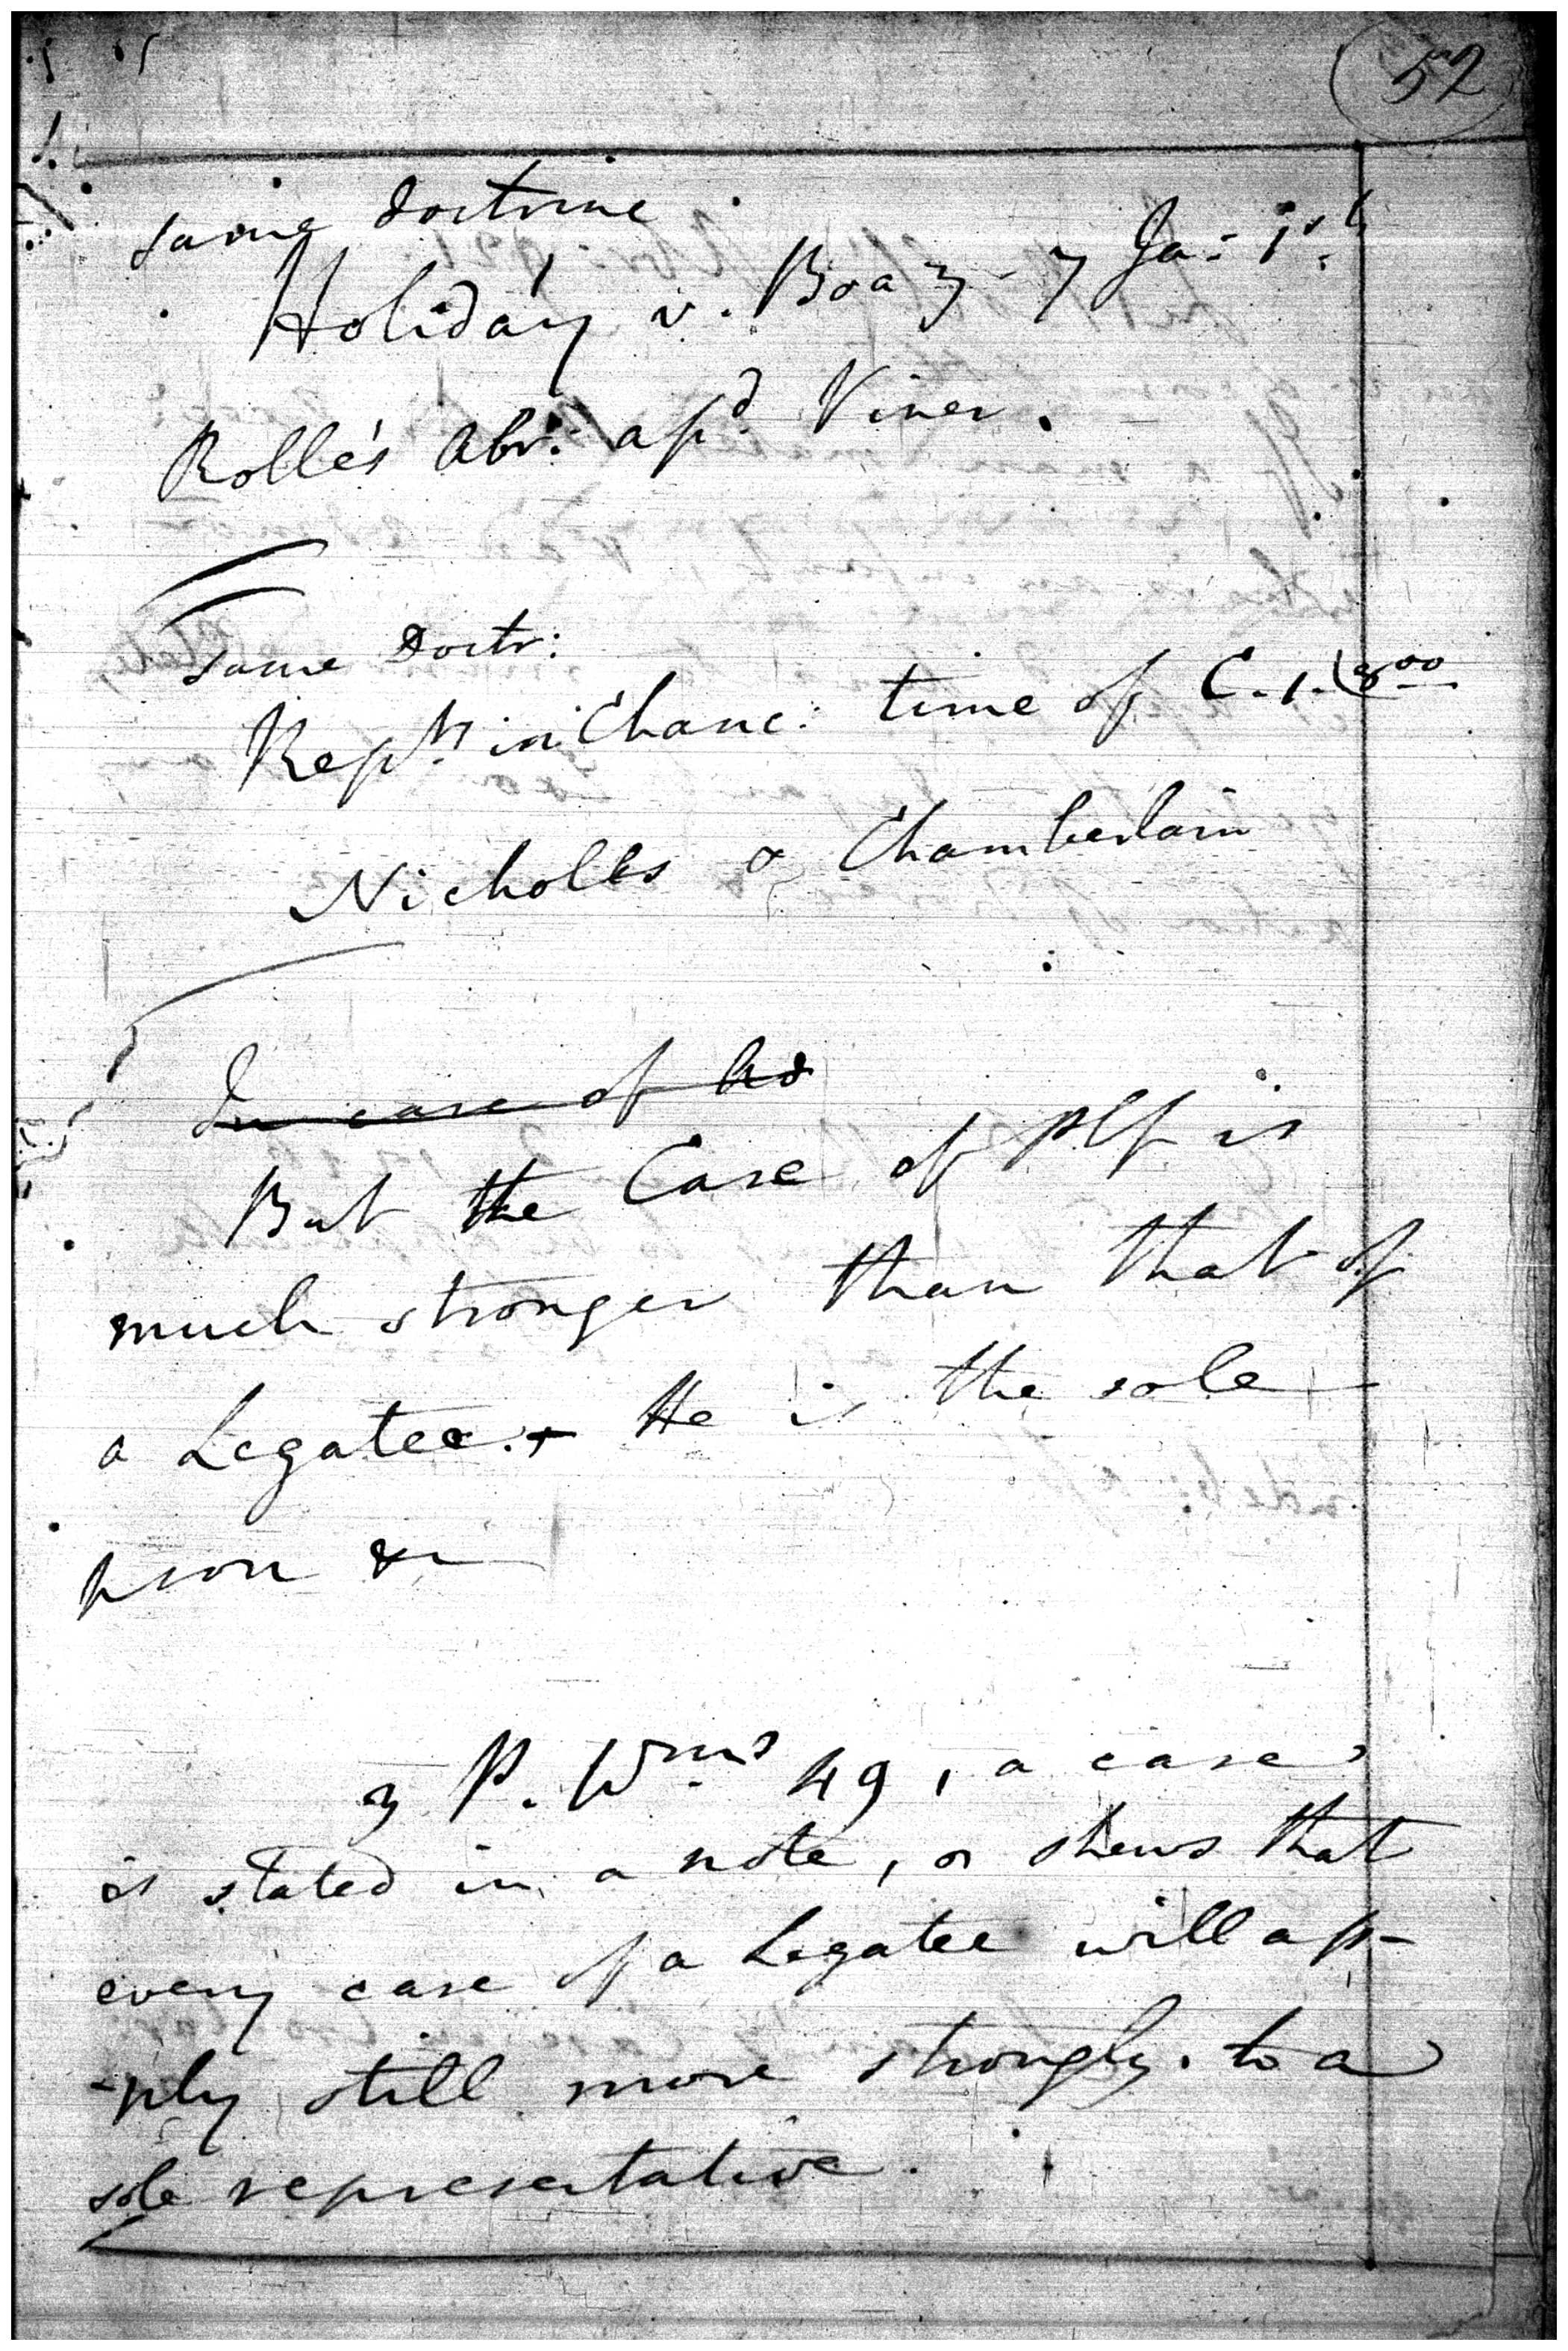 52
same doctrine
Holiday v. Boaz - 7 Ja: 1st.
Rolle's Abr: apd. Viner.
Same Doctr:
Repts. in Chanc: time of C. 1. 800
Nicholls & Chamberlain
In case of Ad
But the Case of Plf is
much stronger than that of
a Legatee. + He is the sole
pson &c
3 P. Wms 49, a case
is stated in a note, & shews that
every case of a Legatee will ap-
-ply still more strongly to a
sole representative.